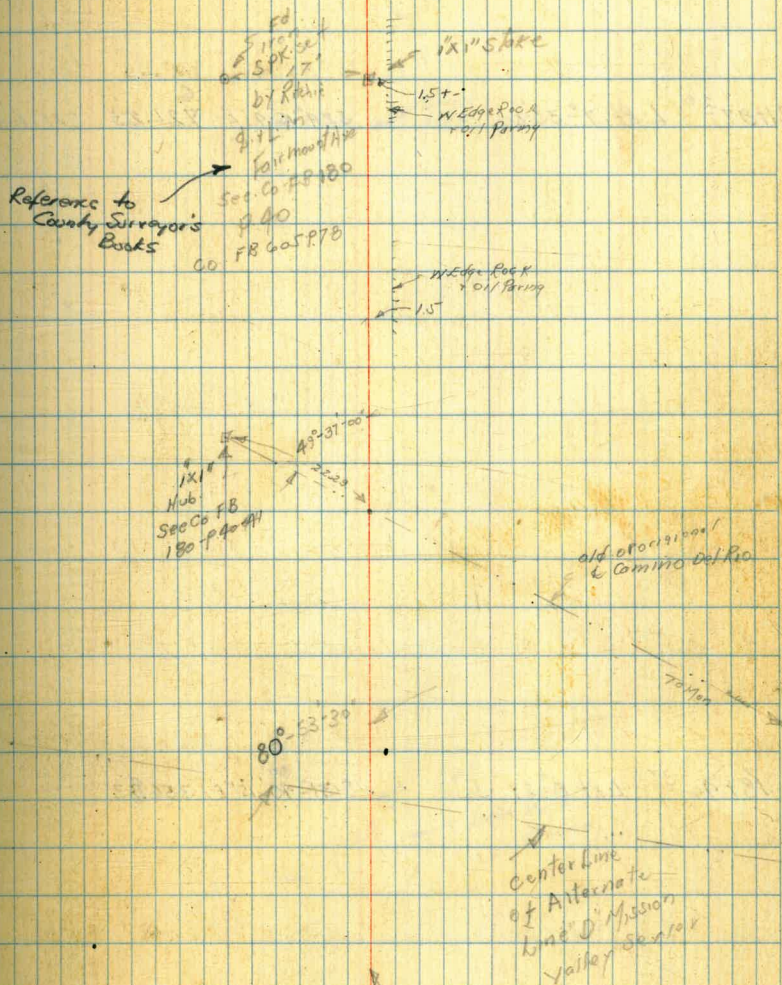 Fd
Iron
Spk. set
17'
by Ritchie
Fairmount Ave
See Co FB 180
P 40
Co FB 605 P.78
1"x1" Stake
1.5 +-
W Edge Rock
+ Oil Paving
Reference to
County Surveyor's
Books
W Edge Rock
+ Oil Paving
1.5
49°-37'-00"
22.29
1"x1"
Hub
See Co FB
180-P 40-41
old origional
℄ Camino Del Rio
To Mon
80°-53'-30"
Center Line
of Alternate
Line "D" Mission
Valley